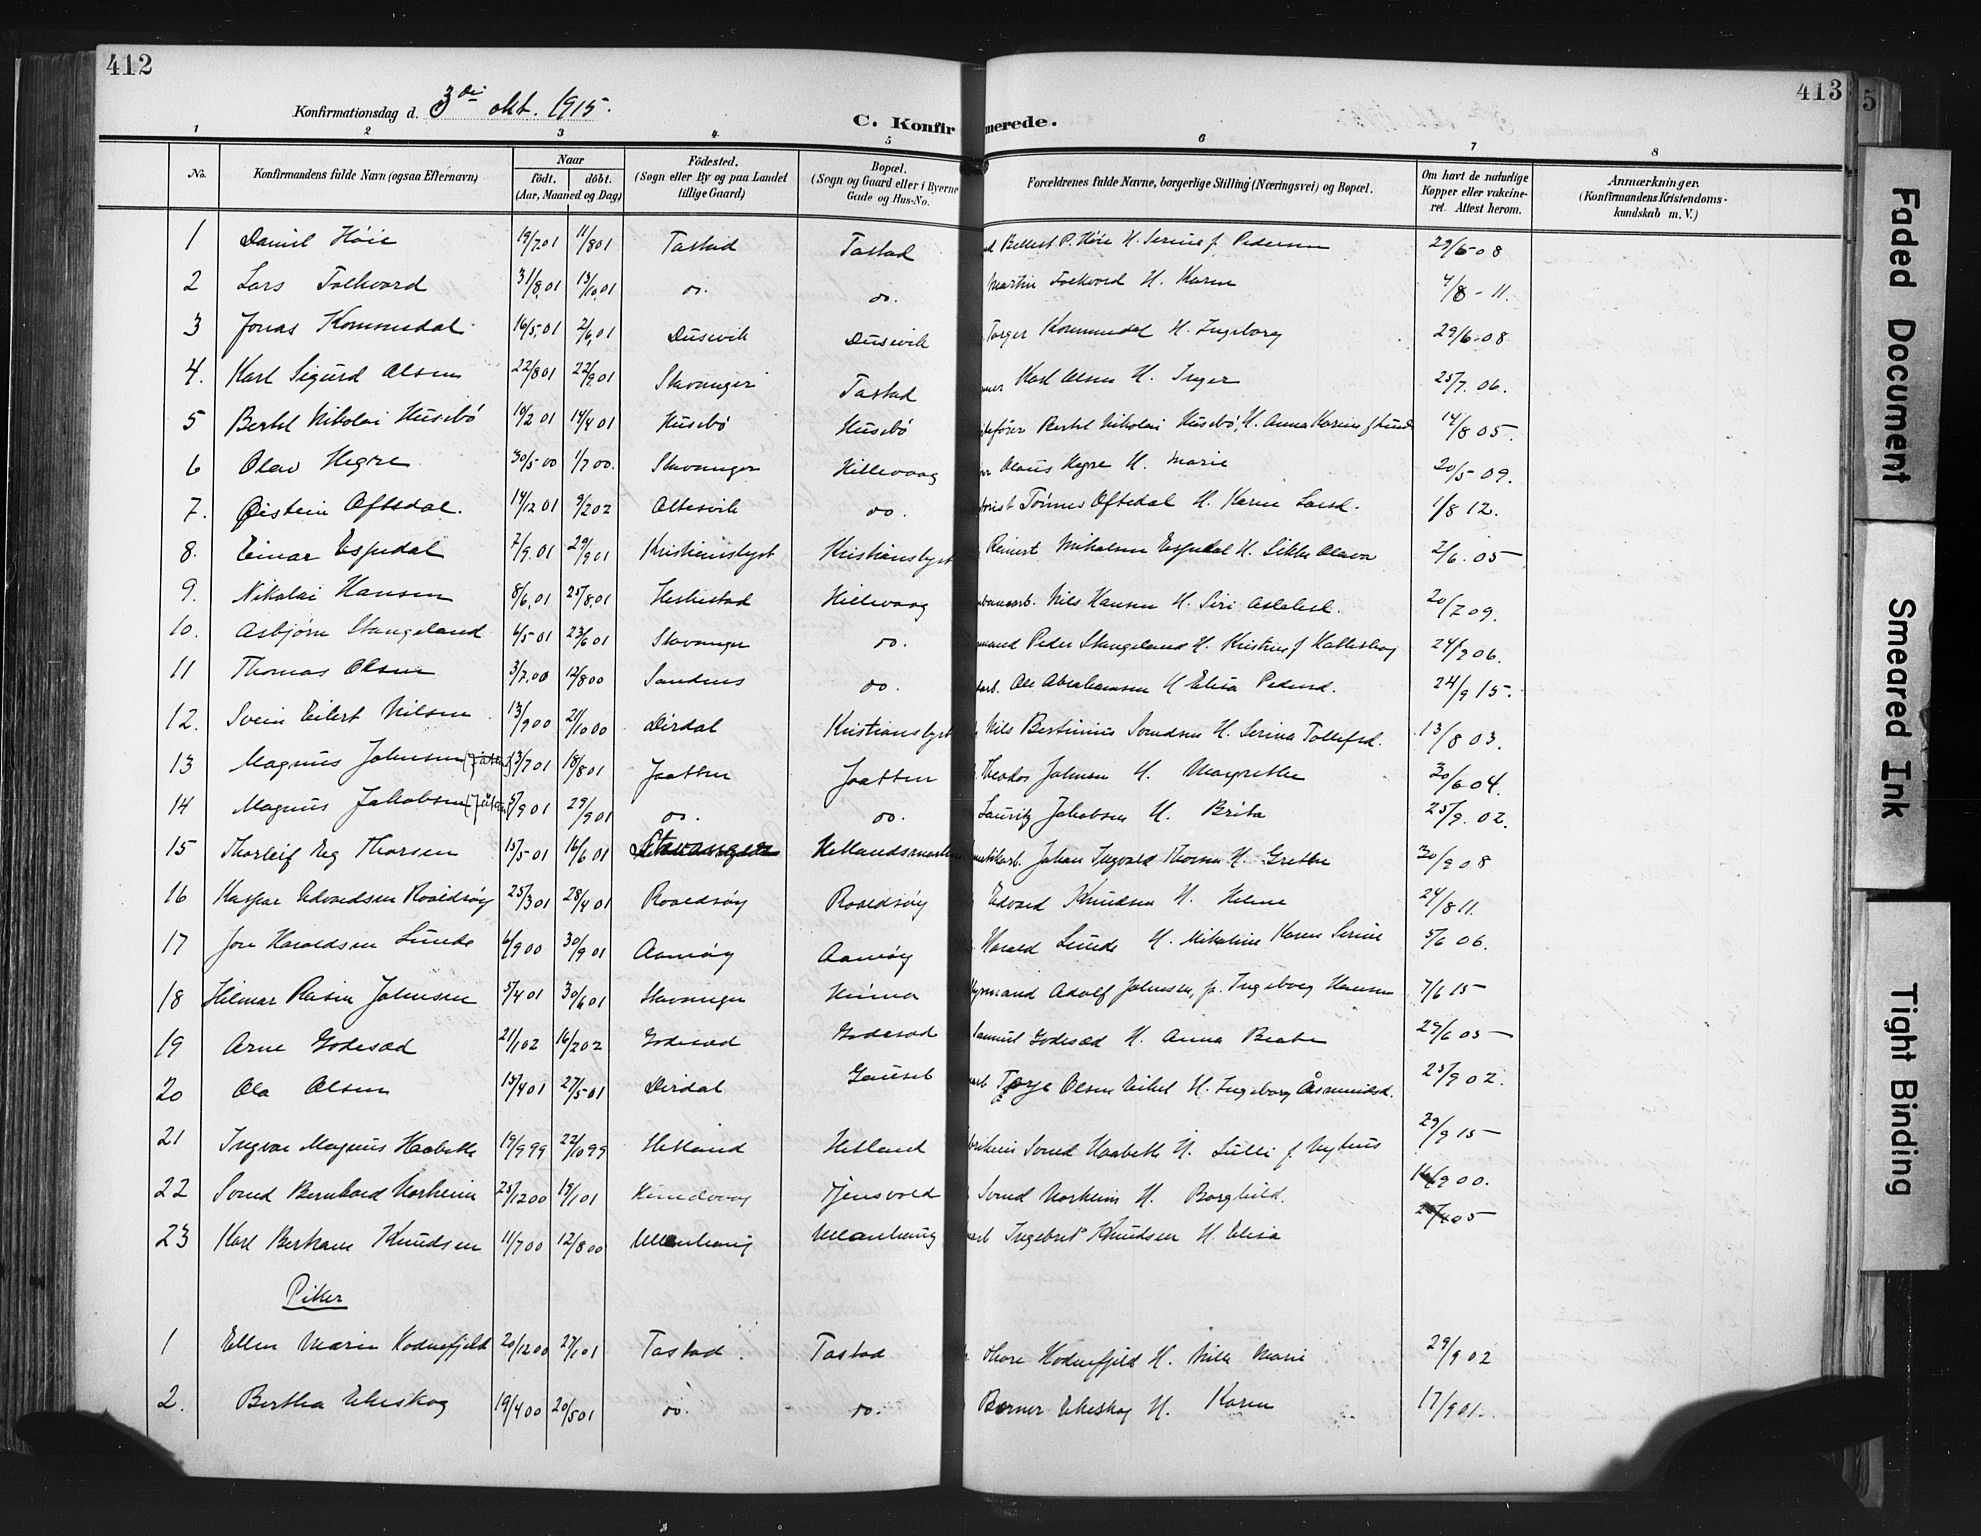 412
413
5
Konfirmationsdag d. 3di okt. 1915.
C. Konfirmerede.
1 2 3 4 5 6 7 8
No.
Konfirmandens fulde Navn (ogsaa Efternavn)
Naar
født. døbt.
(Aar, Maaned og Dag)
Fødested.
(Sogn eller By og paa Landet
tillige Gaard)
Bopæl.
(Sogn og Gaard eller i Byerne
Gade og Hus-No.
Forældrenes fulde Navne, borgerlige Stilling (Næringsvei) og Bopæl.
Om havt de naturlige
Kopper eller vakcine-
ret. Attest herom.
Anmærkninger.
(Konfirmandens Kristendoms-
kundskab m. V.)
1 Daniel Høie 19/7 01 11/8 01 Tastad Tastad P. Høie H. Serine f. Pedersen 29/6-08
2 Lars Folkvord 31/8.01 13/10.01 do. do. Martin Folkvord H. Karen 4/8-11.
3 Jonas Kommedal 16/5.01 2/6.01 Dusevik Dusevik Torger Kommedal H. Ingeborg 29/6-08
4. Karl Sigurd Olsen 22/8 01 22/9.01 Stavanger Tastad Karl Olsen H. Inger 25/7. 06.
5 Bertel Nikolai Husebø 10/2 01 14/4 01 Husebø Husebø Bertel Nikolai Husebø, H. Anna Karine f Lund 14/8 05.
6 Olav Hegre 30/5-00 1/7 00. Stavanger Hillevaag Olaus Hegre H. Marie 20/5-09.
7. Øistein Oftedal. 14/12 01 9/2 02 Altesvik do. Tønnes Oftedal H. Karen Larsd. 1/8 12.
8. Einar Espedal 7/9.01 29/9 01 Kristianslyst Kristianslyst Reinert Mikalsen Espedal H. Olava 2/6.05
9. Nikolai Hansen 8/6.01 25/8.01 Heskestad Hillevaag Nils Hansen H. Siri Aslaksd. 20/7 09.
10. Asbjørn Stangeland 6/5-01 23/6 01 Stavanger do. Peder Stangeland H. Kristine f Hatteskog 24/9 06.
11 Thomas Olsen 3/7.00 12/8 00 Sandnes do. Ole Abrahamsen H Elisa Pedersd. 24/9 15.
12. Svein Eilert Nilsen 13/9 00 21/10 00 Dirdal Kristianslyst Nils Bertinius Svendsen H. Serina Tollefsd. 13/8 03.
13 Magnus Johnsen (Jåtten) 13/7 01 18/8 01 Jaatten Jaatten Theodor Johnsen H. Margrethe 30/6 04.
14 Magnus Jakobsen (Jåtten) 5/9 01 29/9 01 do. do. Lauritz Jakobsen H. Brita 25/9.02.
15 Thorleif Eeg Thorsen 15/5 01 16/6 01 Stavanger Hetlandsmarken Johan Ingvald Thorsen H. Grethe 30/9 08
16 Kaspar Edvardsen Roaldsøy 25/3 01 28/4 01 Roaldsøy Roaldsøy Edvard Knudsen H. Helene 24/8 11.
17 Jon Haraldsen Lunde 6/9 00 30/9 01 Aamøy Aamøy Harald Lunde H. Mikaline Karen Serine 5/6 06.
18 Hilmar Rasin Johnsen 5/4 01 30/6 01 Stavanger Hinna Adolf Johnsen, f. Ingeborg Hansen 7/6 15
19 Arne Godesæd 21/1 02 16/2 02 Godesæd Godesæd Samuel Godesæd H. Anna Beate 29/6 05
20 Ola Olsen 15/4 01 27/5 01 Dirdal Gausel Terje Olsen H. Ingeborg Åsmundsd. 25/9 02.
21 Ingvar Magnus Haabeth 19/9 99 22/10 99 Hetland Hetland Svend Haabeth H. Lulli f. Nyhus 29/9 15
22 Svend Bernhard Norheim 25/12 00 19/1 01 Hundvaag Jensvold Svend Norheim H. Borghild. 16/9 00.
23 Karl Bertram Knudsen 11/7 00 12/8 00 Ullenhaug Ullenhaug Ingebret Knudsen H. Elisa 25/4 05
Piker
1 Ellen Marie Hodnefjeld 20/12 00 27/1 01 Tastad Tastad Thore Hodnefjeld H. Nille Marie 29/9 02
2. Bertha Eikeskog 19/4 00 20/5 01 do. do. Berner Eikeskog H. Karen 17/9 01.
Faded Document
Smeared Ink
Tight Binding